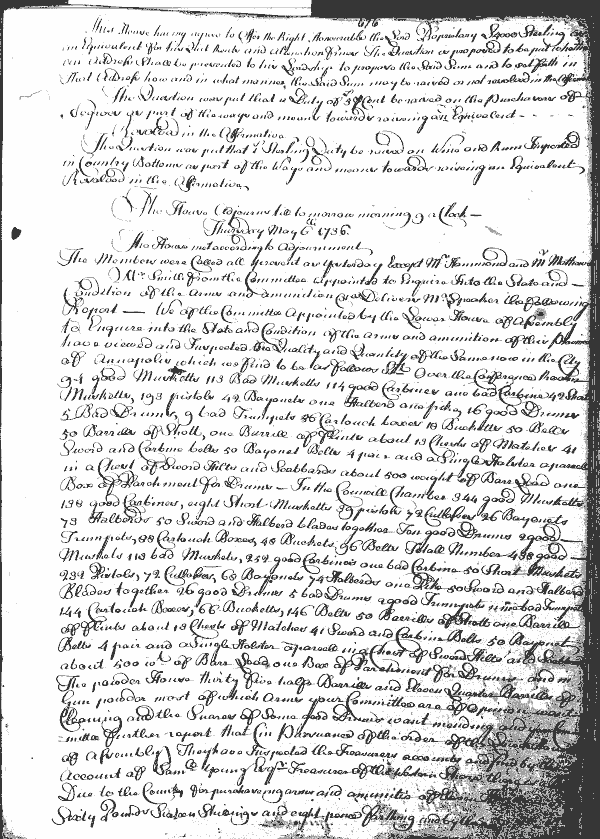 676
This House having agree to Offer the Right Honourable the Lord Proprietary £5000 Sterling
an Equivalent for his Quit Rents and Alienation Fines The Question is proposed to be put whether
an Address shall be presented to his Lordship to propose the said Sum and to set forth in
that Address how and in what manner the said Sum may be raised or not resolved in the Affirmative
The Question was put that a Duty of be raised on the Purchasers of
as part of the ways and means towards raising an Equivalent
Resolved in the Affirmative
The Question was put that Sterling Duty be raised on Wine and Rum Imported
in Country Bottoms as part of the Ways and means towards raising an Equivalent
Resolved in the Affirmative
The House Adjourns till to morrow morning 9 a Clock —
Thursday May 6th 1736
The House met according to Adjournment
The Members were called all present as yesterday Except Mr Hammond and Mr Mathews
Mr Smith from the Committee appointed to Enquire into the State and —
Condition of the Arms and ammunition Delivers Mr Speaker the following
Report — We of the Committee Appointed by the Lower House of Assembly
to Enquire into the State and Condition of the Arms and ammunition of this Province
have viewed and Inspected the Quality and Quantity of the Same now in the City
of Annapolis which we find to be as follows Over the Conference
94 good Musketts 113 Bad Musketts 114 good Carbines one bad Carbine 42 Short
Musketts, 193 pistols 42 Bayonets one Halberd one 16 good Drums
5 Bad Drums, 9 bad Trumpets 56 Cartouch boxes 18 Bucketts 50 Belts
50 Barrills of Shott, one Barrill of Flints about 13 Chests of Matches 41
Sword and Carbine belts 50 Bayonet Belts 4 pair and a Single Holster a parcell
in a Chest of Sword Hilts and Scabbards about 500 weight of Barr Lead one
Box of Parchment for Drums — In the Councill Chamber 344 good Musketts
138 good Carbines, eight Short Musketts 39 pistols 72 Cutlasses 26 Bayonets
73 Halberds 50 Sword and Halberd blades together Ten good Drums 2 good
Trumpets, 88 Cartouch Boxes, 48 Bucketts, 96 Belts Totall Number 438 good
Musketts 113 bad Musketts, 252 good Carbines one bad Carbine 50 Short Musketts
232 Pistols, 72 Cutlasses, 68 Bayonets 74 Halberds one 50 Sword and Halberd
Blades together 26 good Drums 5 bad Drums 2 good Trumpets nine bad Trumpets
144 Cartouch Boxes, 66 Bucketts, 146 Belts 50 Barrills of Shott one Barrill
of Flints about 13 Chests of Matches 41 Sword and Carbine Belts 50 Bayonet
Belts 4 pair and a Single Holster a parcell in a Chest of Sword Hilts and
about 500 wt of Barr Lead one Box of Parchment for Drums — and in
The powder House thirty five halfe Barrills and Eleven Quarter Barrills of
Gun powder most of which Arms your Committee are of Opinion want
Cleaning and the Snares of Some good Drums want mending and
mittee further report that (in Pursuance of the order of the
of Assembly) They have Inspected the Treasurers accounts and find by the
Account of Saml Young Esqr Treasurer of the Western Shore
Due to the Country for purchaseing arms and amunition
Sixty Pounds Sixteen Shillings and eight pence farthing and by the